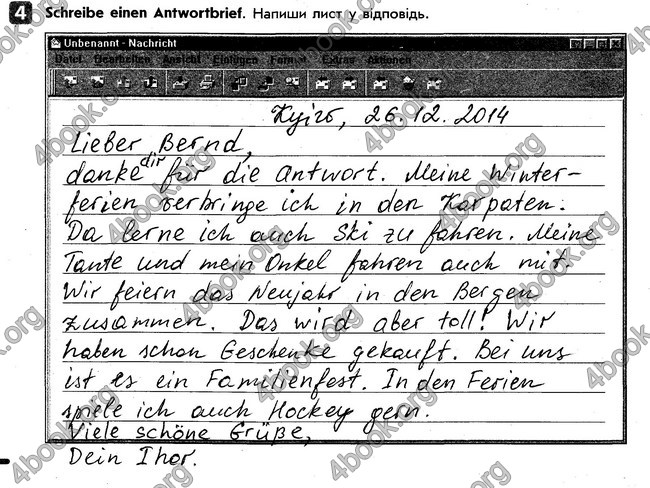 4 Schreibe einen Antwortbrief. Напиши лист у відповідь.
Unbenannt - Nachricht
Datei Bearbeiten Ansicht Einfügen Format Extras Aktionen
Київ, 26.12.2014
Lieber Bernd,
danke dir für die Antwort. Meine Winter-
ferien verbringe ich in den Karpaten.
Da lerne ich auch Ski zu fahren. Meine
Tante und mein Onkel fahren auch mit.
Wir feiern das Neujahr in den Bergen
zusammen. Das wird aber toll! Wir
haben schon Geschenke gekauft. Bei uns
ist es ein Familienfest. In den Ferien
spiele ich auch Hockey gern.
Viele schöne Grüße,
Dein Ihor.
4book.org